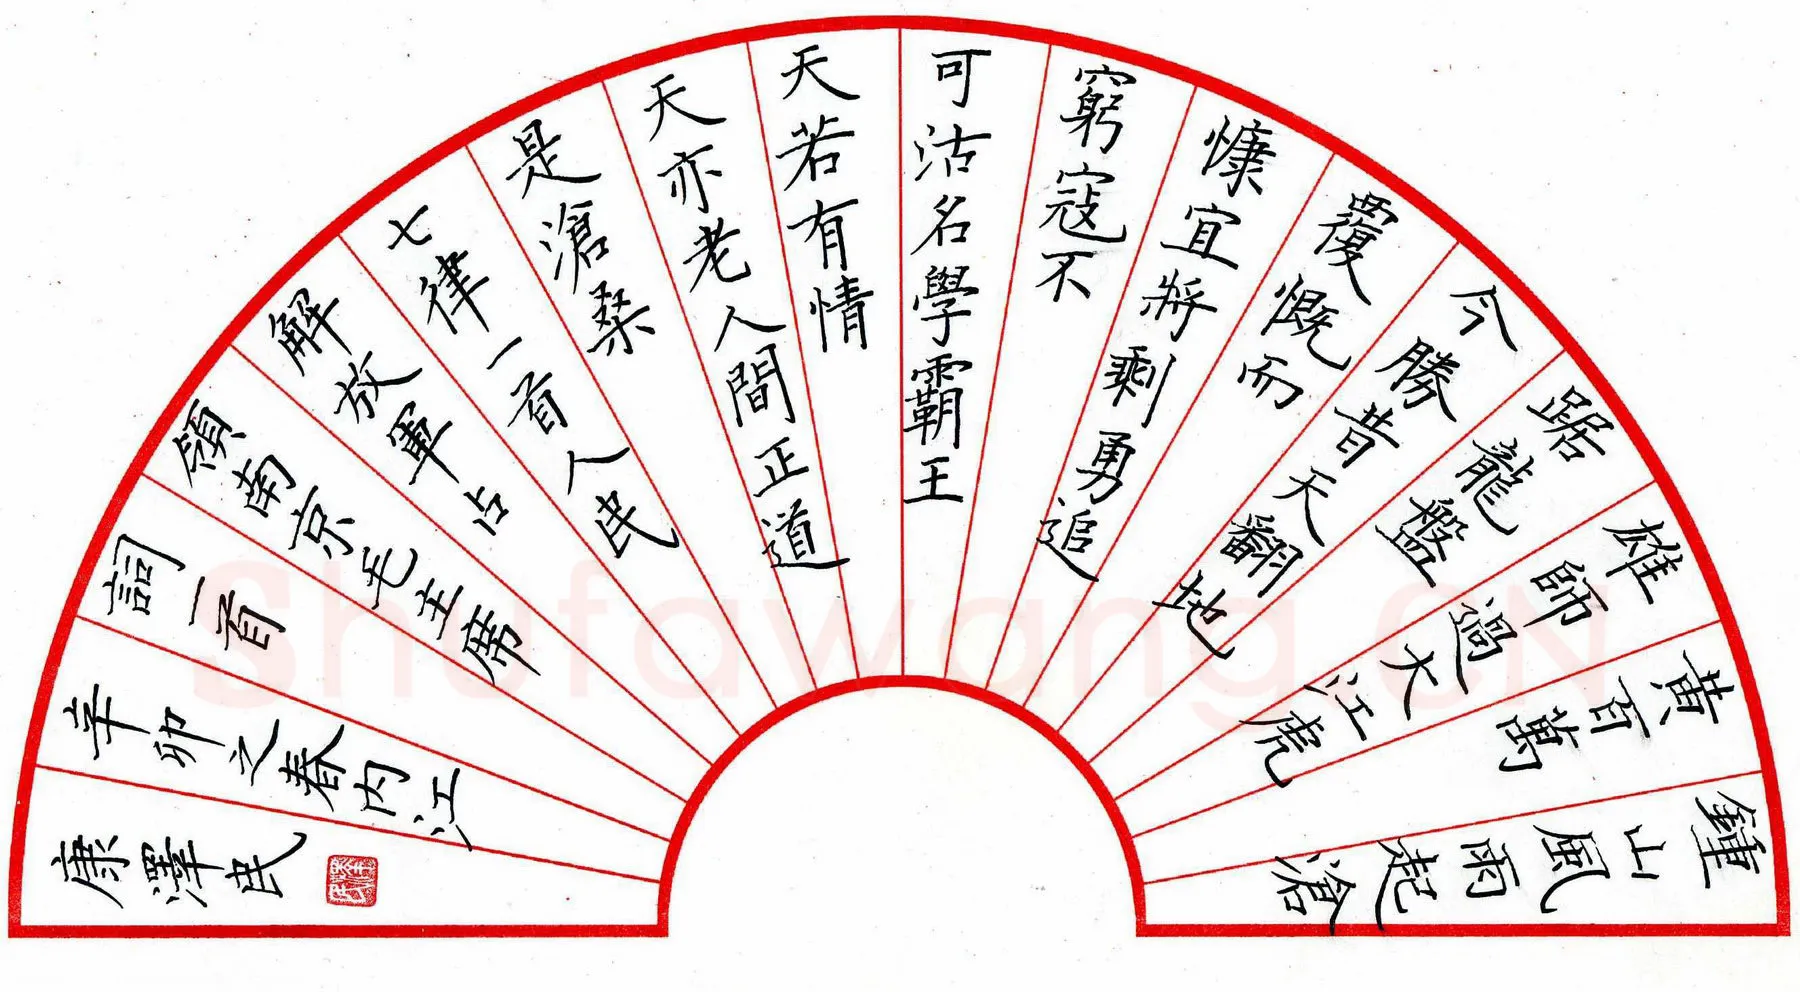 鍾山風雨起滄
黃百萬
雄師過大江虎
踞龍盤
今勝昔天翻地
覆慨而
慷宜將剩勇追
窮寇不
可沽名學霸王
天若有情
天亦老人間正道
是滄桑
七律一首人民
解放軍占
領南京毛主席
詞一首
辛卯之春内江
康澤民
Shufawang.CN